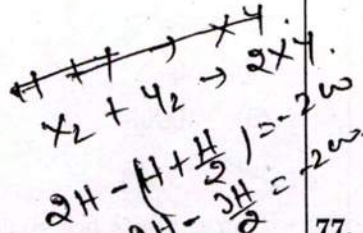 XY.
X₂ + Y₂ → 2XY.
2H - (H + H/2) = -200
2H - 3H/2 = -200
77.